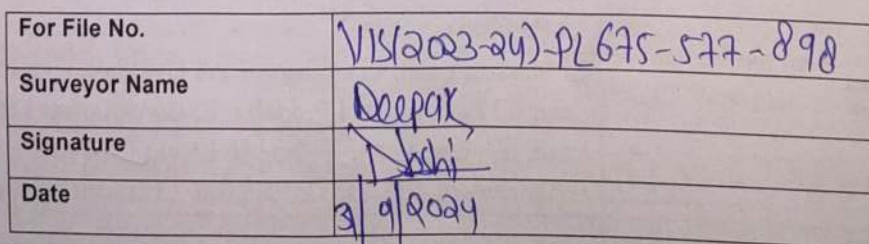 For File No. VIS(2023-24)-PL675-577-898
Surveyor Name Deepak
Signature Joshi
Date 3/9/2024